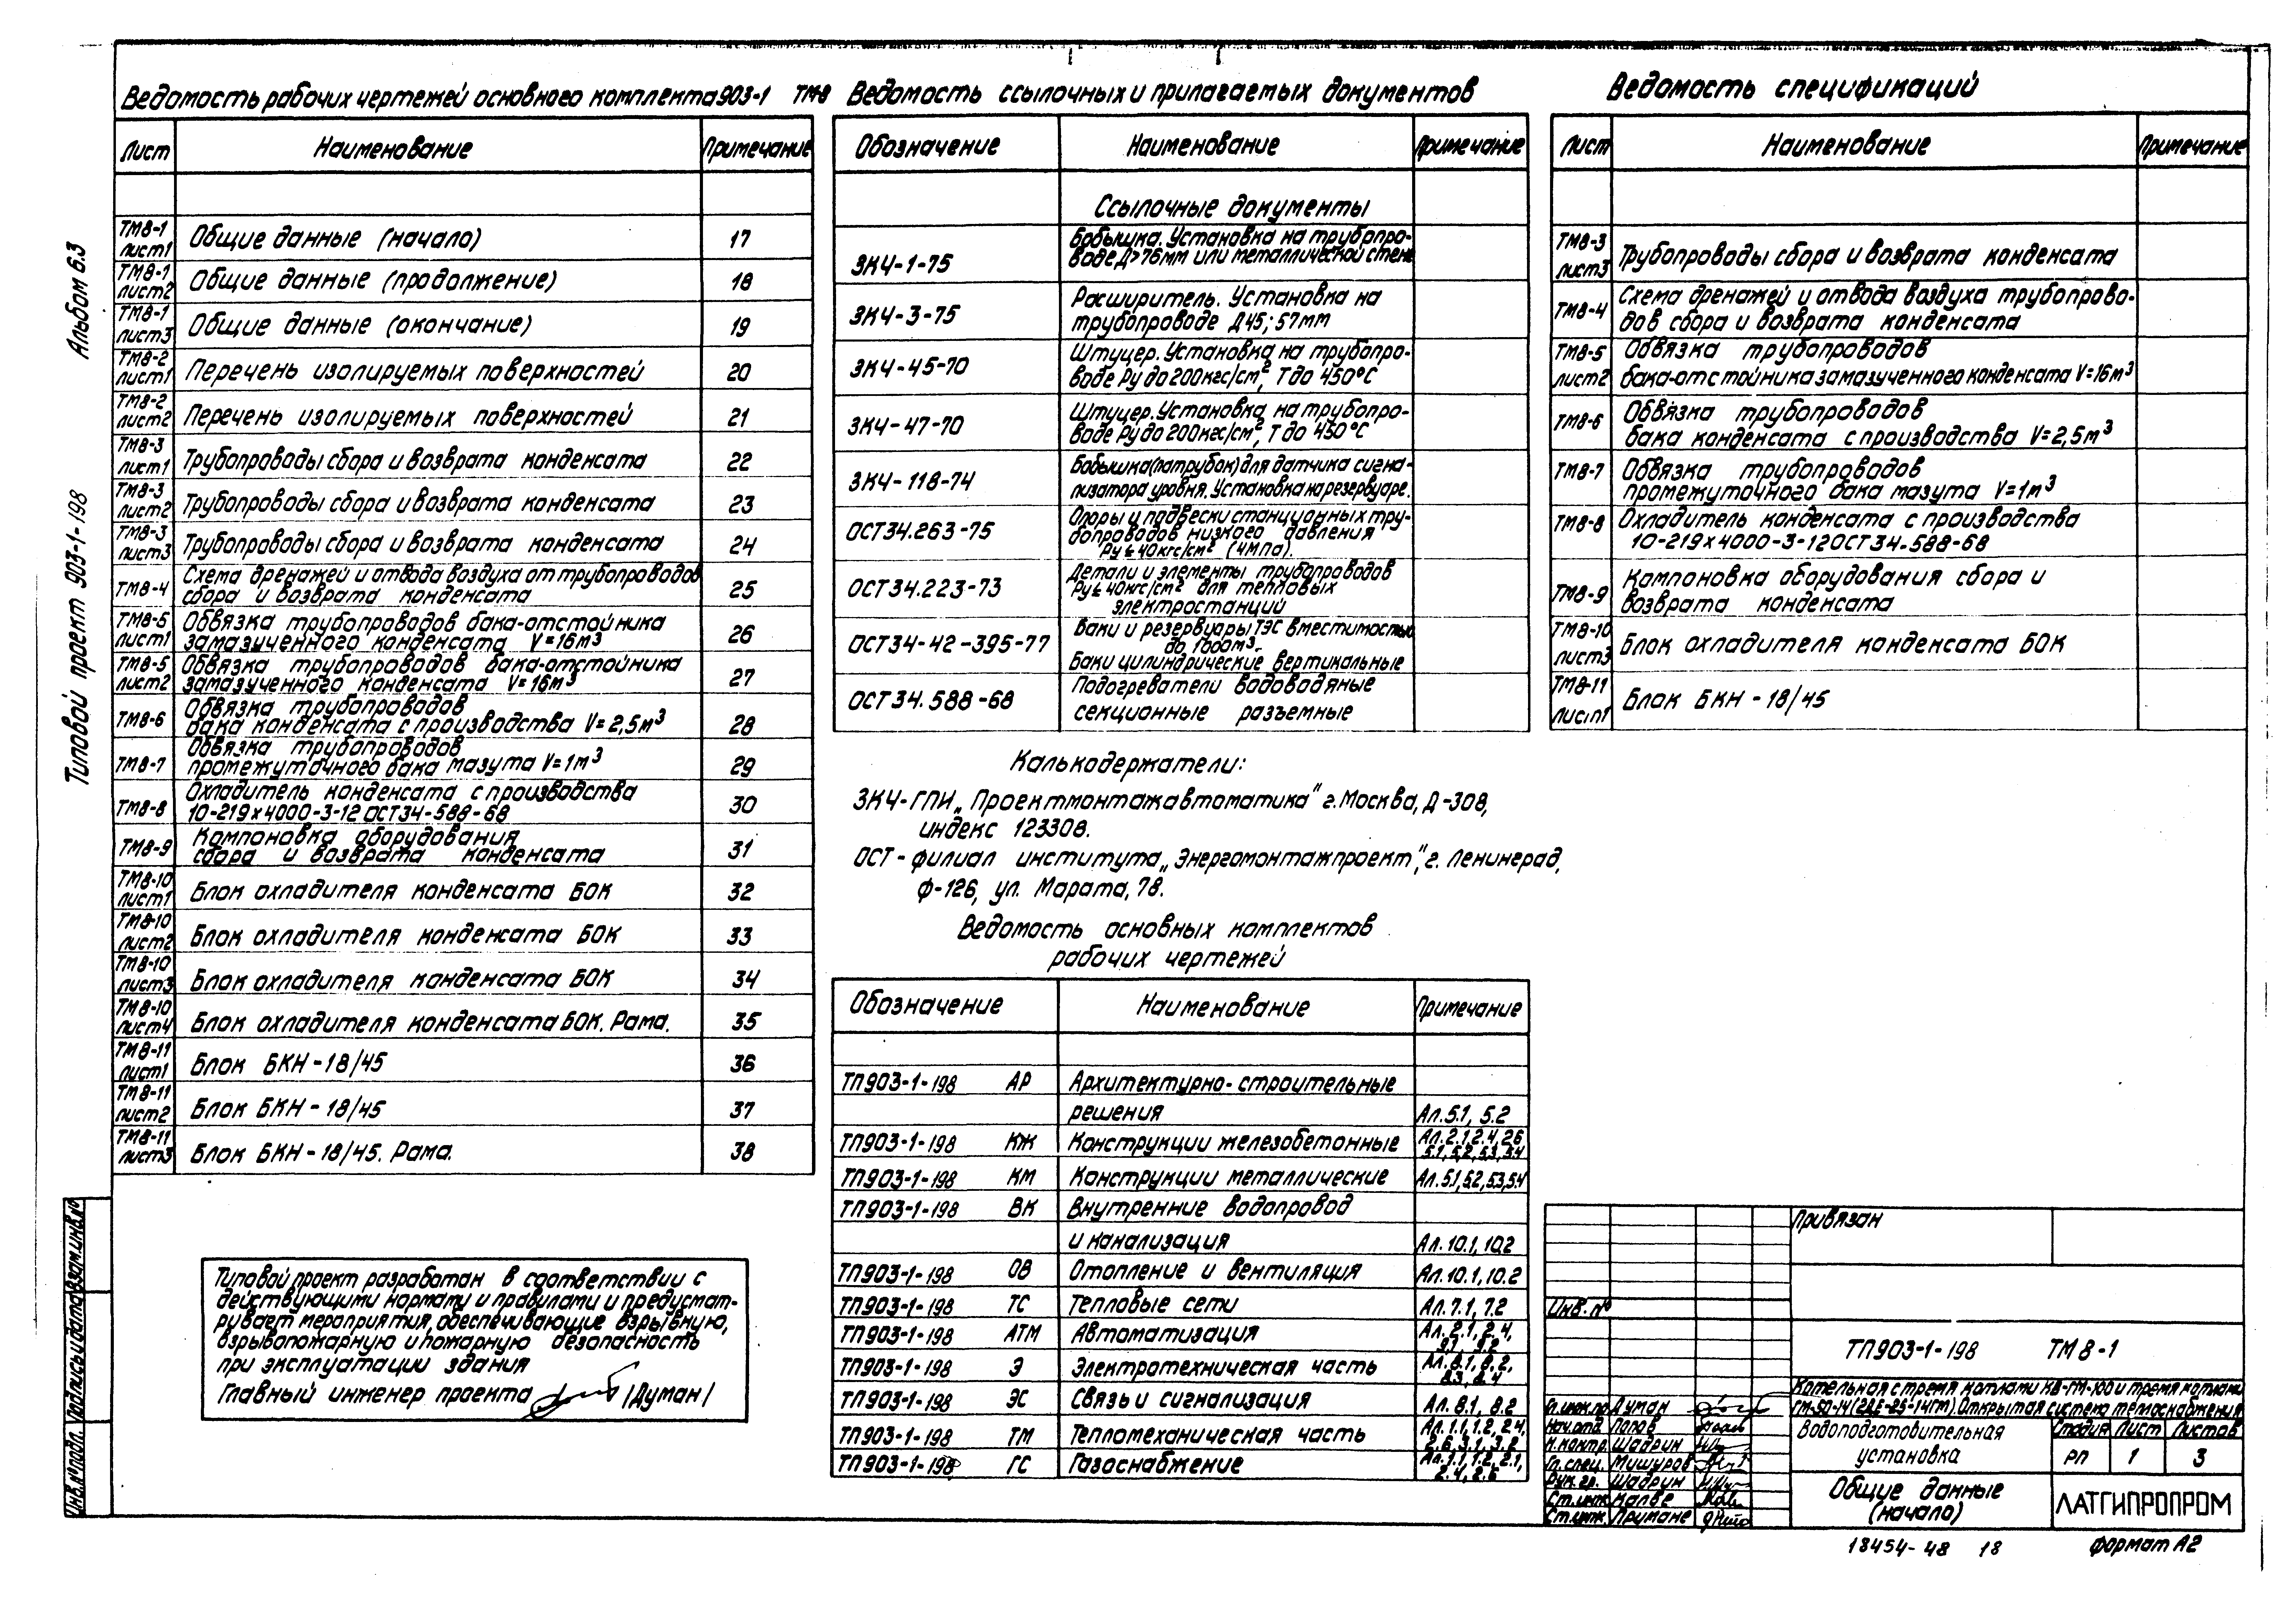 Альбом 6.3
Типовой проект 903-1-198
Ведомость рабочих чертежей основного комплекта 903-1 ТМ8
Лист Наименование Примечание
ТМ8-1 лист1 Общие данные (начало) 17
ТМ8-1 лист2 Общие данные (продолжение) 18
ТМ8-1 лист3 Общие данные (окончание) 19
ТМ8-2 лист1 Перечень изолируемых поверхностей 20
ТМ8-2 лист2 Перечень изолируемых поверхностей 21
ТМ8-3 лист1 Трубопроводы сбора и возврата конденсата 22
ТМ8-3 лист2 Трубопроводы сбора и возврата конденсата 23
ТМ8-3 лист3 Трубопроводы сбора и возврата конденсата 24
ТМ8-4 Схема дренажей и отвода воздуха от трубопроводов
сбора и возврата конденсата 25
ТМ8-5 лист1 Обвязка трубопроводов бака-отстойника
замазученного конденсата V=16м³ 26
ТМ8-5 лист2 Обвязка трубопроводов бака-отстойника
замазученного конденсата V=16м³ 27
ТМ8-6 Обвязка трубопроводов
бака конденсата с производства V=2,5м³ 28
ТМ8-7 Обвязка трубопроводов
промежуточного бака мазута V=1м³ 29
ТМ8-8 Охладитель конденсата с производства
10-219х4000-3-12 ОСТ34-588-68 30
ТМ8-9 Компоновка оборудования
сбора и возврата конденсата 31
ТМ8-10 лист1 Блок охладителя конденсата БОК 32
ТМ8-10 лист2 Блок охладителя конденсата БОК 33
ТМ8-10 лист3 Блок охладителя конденсата БОК 34
ТМ8-10 лист4 Блок охладителя конденсата БОК. Рама. 35
ТМ8-11 лист1 Блок БКН-18/45 36
ТМ8-11 лист2 Блок БКН-18/45 37
ТМ8-11 лист3 Блок БКН-18/45. Рама. 38
Типовой проект разработан в соответствии с
действующими нормами и правилами и предусмат-
ривает мероприятия, обеспечивающие взрывную,
взрывопожарную и пожарную безопасность
при эксплуатации здания
Главный инженер проекта /Думан/
Ведомость ссылочных и прилагаемых документов
Обозначение Наименование Примечание
Ссылочные документы
ЗК4-1-75 Бобышка. Установка на трубопро-
воде Д>76мм или металлической стене
ЗК4-3-75 Расширитель. Установка на
трубопроводе Д45; 57мм
ЗК4-45-70 Штуцер. Установка на трубопро-
воде Ру до 200кгс/см², Т до 450°С
ЗК4-47-70 Штуцер. Установка на трубопро-
воде Ру до 200кгс/см², Т до 450°С
ЗК4-118-74 Бобышка (патрубок) для датчика сигна-
лизатора уровня. Установка на резервуаре.
ОСТ34.263-75 Опоры и подвески станционных тру-
бопроводов низкого давления
Ру≤40кгс/см² (4МПа).
ОСТ34.223-73 Детали и элементы трубопроводов
Ру≤40кгс/см² для тепловых
электростанций
ОСТ34-42-395-77 Баки и резервуары ТЭС вместимостью
до 1000м³.
Баки цилиндрические вертикальные
ОСТ34.588-68 Подогреватели водоводяные
секционные разъемные
Калькодержатели:
ЗК4-ГПИ „Проектмонтажавтоматика" г. Москва, Д-308,
индекс 123308.
ОСТ- филиал института „Энергомонтажпроект", г. Ленинград,
Ф-126, ул. Марата, 78.
Ведомость основных комплектов
рабочих чертежей
Обозначение Наименование Примечание
ТП903-1-198 АР Архитектурно-строительные
решения Ал.5.1, 5.2
ТП903-1-198 КЖ Конструкции железобетонные Ал.2.1,2.4,2.6
5.1,5.2,5.3,5.4
ТП903-1-198 КМ Конструкции металлические Ал.5.1,5.2,5.3,5.4
ТП903-1-198 ВК Внутренние водопровод
и канализация Ал.10.1, 10.2
ТП903-1-198 ОВ Отопление и вентиляция Ал.10.1,10.2
ТП903-1-198 ТС Тепловые сети Ал.7.1, 7.2
ТП903-1-198 АТМ Автоматизация Ал.2.1, 2.4,
9.1, 9.2
ТП903-1-198 Э Электротехническая часть Ал.8.1, 8.2,
8.3, 8.4
ТП903-1-198 ЭС Связь и сигнализация Ал. 8.1, 8.2
ТП903-1-198 ТМ Тепломеханическая часть Ал.1.1,1.2, 2.4,
2.6, 3.1, 3.2
ТП903-1-198 ГС Газоснабжение Ал.1.1,1.2, 2.1,
2.4, 2.6
Ведомость спецификаций
Лист Наименование Примечание
ТМ8-3 лист3 Трубопроводы сбора и возврата конденсата
ТМ8-4 Схема дренажей и отвода воздуха трубопрово-
дов сбора и возврата конденсата
ТМ8-5 лист2 Обвязка трубопроводов
бака-отстойника замазученного конденсата V=16м³
ТМ8-6 Обвязка трубопроводов
бака конденсата с производства V=2,5м³
ТМ8-7 Обвязка трубопроводов
промежуточного бака мазута V=1м³
ТМ8-8 Охладитель конденсата с производства
10-219х4000-3-12ОСТ34.588-68
ТМ8-9 Компоновка оборудования сбора и
возврата конденсата
ТМ8-10 лист3 Блок охладителя конденсата БОК
ТМ8-11 лист1 Блок БКН-18/45
Привязан
Инв. №
ТП903-1-198 ТМ8-1
Котельная с тремя котлами КВ-ГМ-100 и тремя котлами
ГМ-50-14 (2ДЕ-25-14ГМ). Открытая система теплоснабжения
Гл.инж.пр Думан
Нач.отд Попов
Н.контр. Шадрин
Гл.спец. Мишуров
Рук.гр. Шадрин
Ст.инж Калве
Ст.инж. Прумане
Водоподготовительная
установка
Стадия Лист Листов
РП 1 3
Общие данные
(начало)
ЛАТГИПРОПРОМ
18454-48 18
формат А2
Инв.№подл. Подпись и дата Взам.инв.№